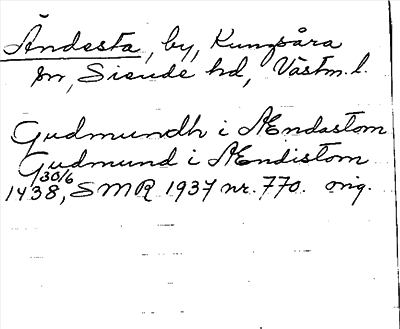 Ändesta, by, Kungsåra
sn, Siende hd, Västm. l.
Gudmundh i Ændastom
Gudmund i Ændistom
30/6
1438, SMR 1937 nr. 770. orig.